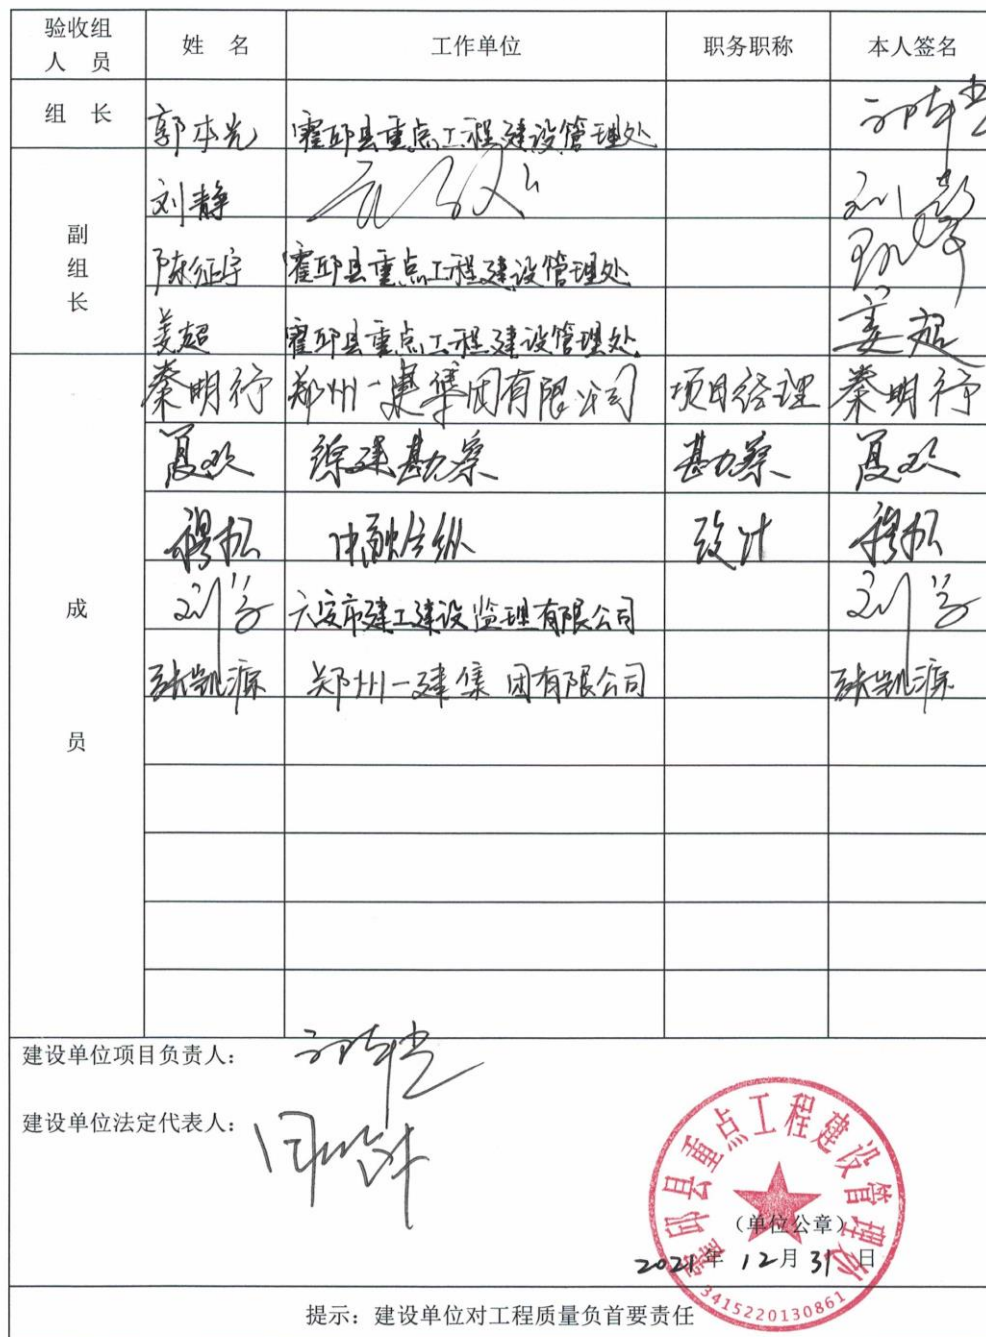 验收组人员 姓 名 工作单位 职务职称 本人签名
组 长 郭本光 霍邱县重点工程建设管理处
副组长 刘静 刘静
陈征宇 霍邱县重点工程建设管理处
姜超 霍邱县重点工程建设管理处 姜超
成员 秦明行 郑州一建集团有限公司 项目经理 秦明行
夏欢 徐建勘察 勘察 夏欢
穆松 设计 穆松
六安市建工建设监理有限公司
张凯源 郑州一建集团有限公司 张凯源
建设单位项目负责人：
建设单位法定代表人：
霍邱县重点工程建设管理处
（单位公章）
2021年 12月 31日
3415220130861
提示：建设单位对工程质量负首要责任